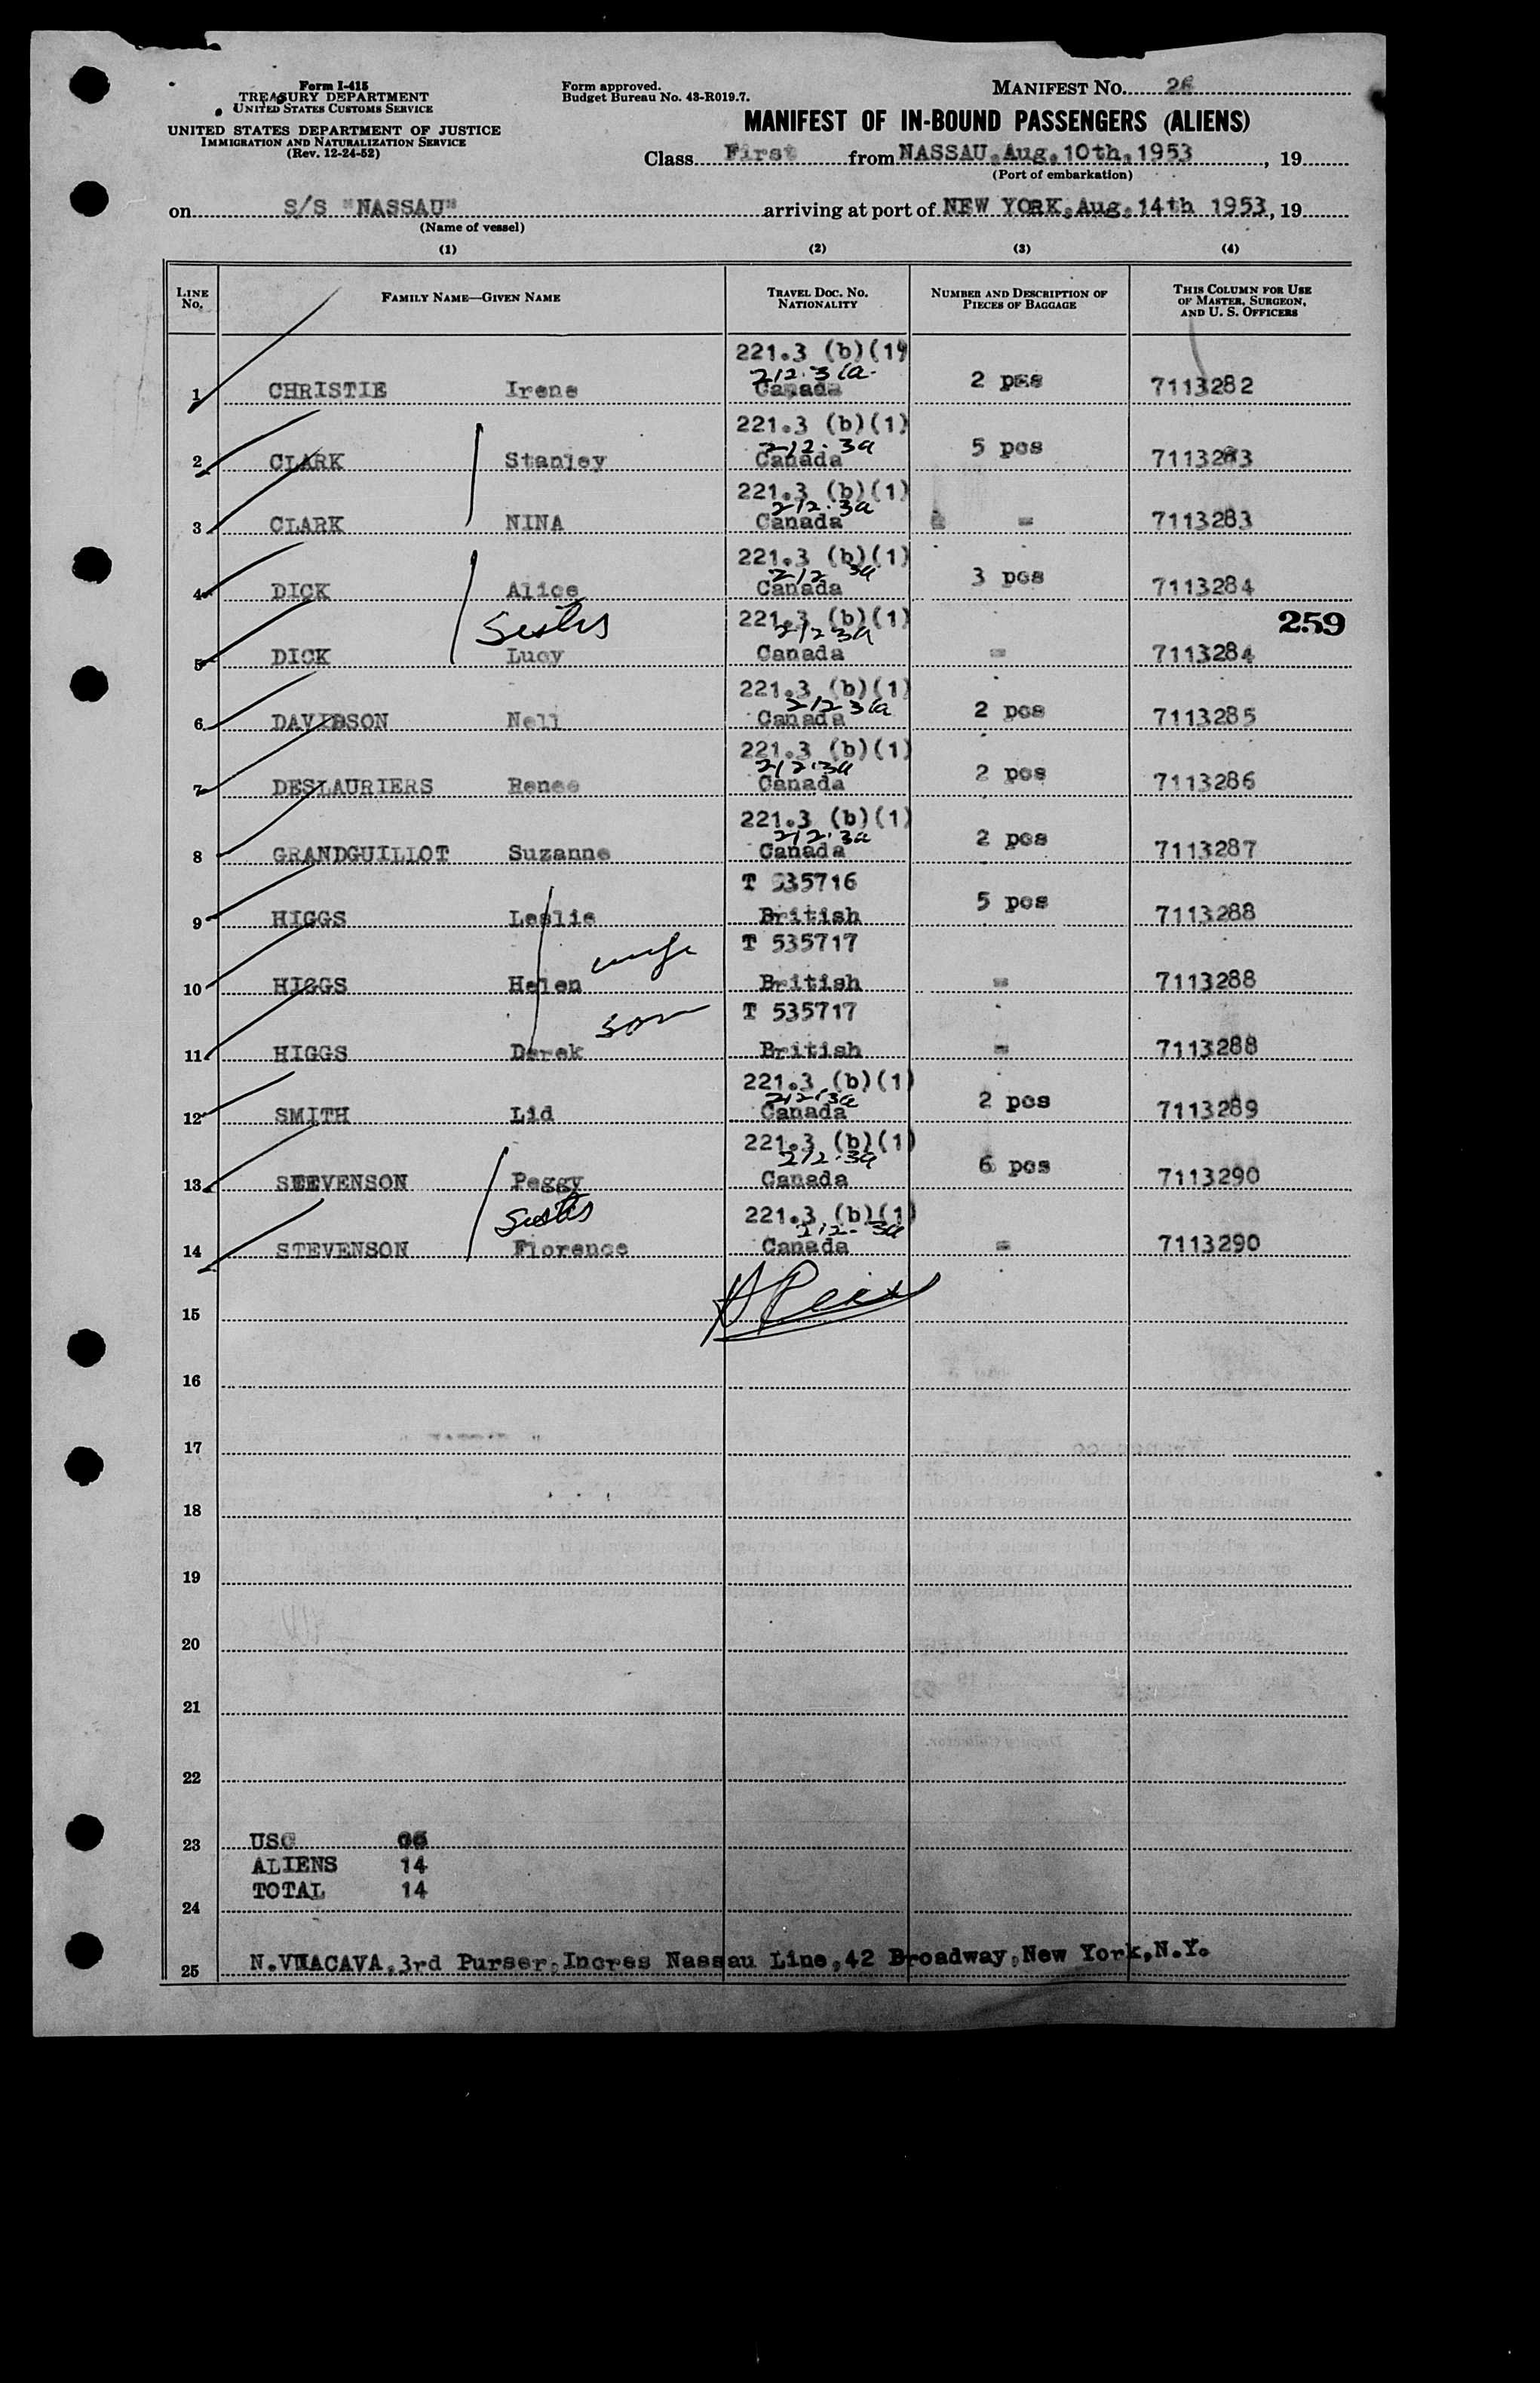 Form I-415
TREASURY DEPARTMENT
UNITED STATES CUSTOMS SERVICE
UNITED STATES DEPARTMENT OF JUSTICE
IMMIGRATION AND NATURALIZATION SERVICE
(Rev. 12-24-52)
Form approved.
Budget Bureau No. 43-R019.7.
MANIFEST No. 26
MANIFEST OF IN-BOUND PASSENGERS (ALIENS)
Class First from NASSAU, Aug. 10th, 1953, 19
(Port of embarkation)
on S/S "NASSAU" arriving at port of NEW YORK, Aug. 14th 1953, 19
(Name of vessel)
(1) (2) (3) (4)
LINE No. FAMILY NAME—GIVEN NAME TRAVEL DOC. No. NATIONALITY NUMBER AND DESCRIPTION OF PIECES OF BAGGAGE THIS COLUMN FOR USE OF MASTER, SURGEON, AND U. S. OFFICERS
221.3 (b)(1)
212.3(a
1 CHRISTIE Irene Canada 2 pcs 7113282
221.3 (b)(1)
212.3a
2 CLARK Stanley Canada 5 pcs 7113283
221.3 (b)(1)
212.3a
3 CLARK NINA Canada = 7113283
221.3 (b)(1)
212 3a
4 DICK Alice Canada 3 pcs 7113284
Sisters 221.3 (b)(1) 259
212 3a
5 DICK Lucy Canada = 7113284
221.3 (b)(1)
212 3(a
6 DAVIDSON Nell Canada 2 pcs 7113285
221.3 (b)(1)
212.3a
7 DESLAURIERS Renee Canada 2 pcs 7113286
221.3 (b)(1)
212.3a
8 GRANDGUILLOT Suzanne Canada 2 pcs 7113287
T 535716
9 HIGGS Leslie British 5 pcs 7113288
wife T 535717
10 HIGGS Helen British = 7113288
son T 535717
11 HIGGS Derek British = 7113288
221.3 (b)(1)
212.3a
12 SMITH Lid Canada 2 pcs 7113289
221.3 (b)(1)
212.3a
13 STEVENSON Peggy Canada 6 pcs 7113290
Sisters 221.3 (b)(1)
212.3a
14 STEVENSON Florence Canada = 7113290
15
16
17
18
19
20
21
22
23 USC 00
ALIENS 14
TOTAL 14
24
25 N.VNACAVA, 3rd Purser, Incres Nassau Line, 42 Broadway, New York, N.Y.